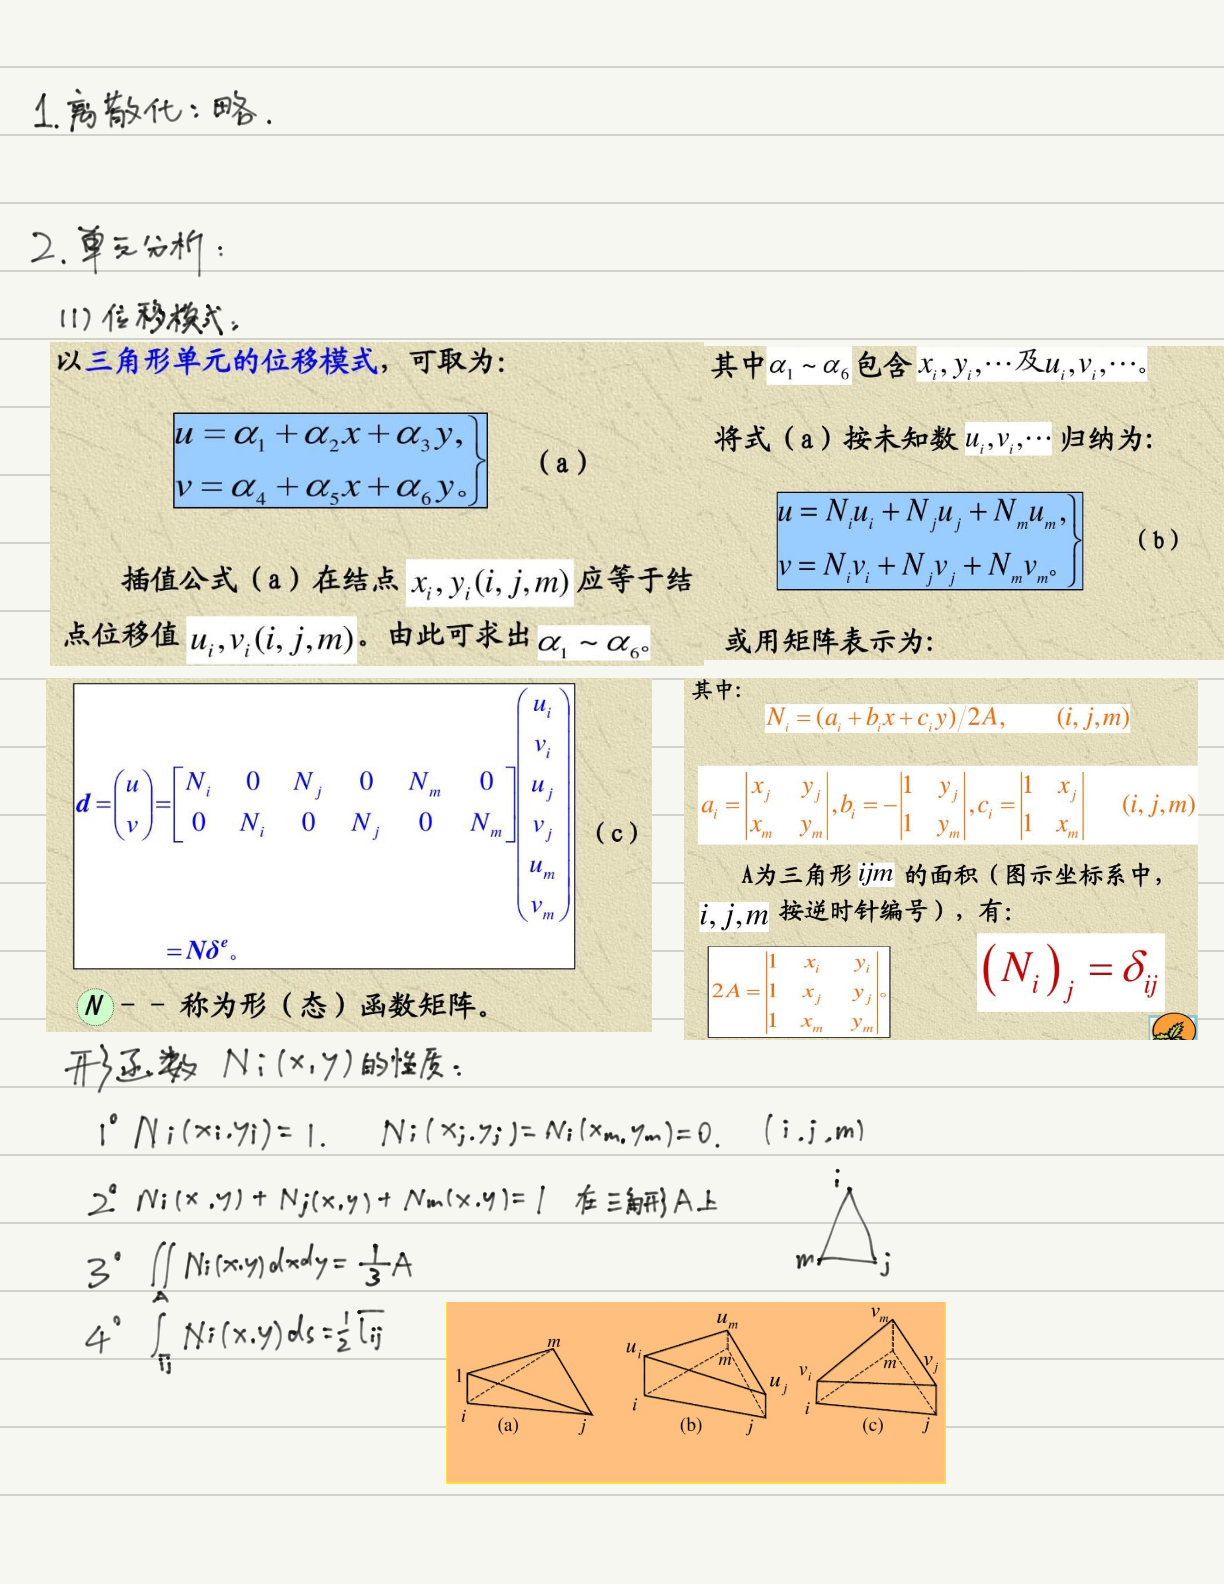 1. 离散化：略.
2. 单元分析：
(1) 位移模式：
以三角形单元的位移模式，可取为：
u = α₁ + α₂x + α₃y,
v = α₄ + α₅x + α₆y。
(a)
插值公式（a）在结点 xᵢ, yᵢ(i, j, m) 应等于结
点位移值 uᵢ, vᵢ(i, j, m)。由此可求出 α₁ ~ α₆。
其中 α₁ ~ α₆ 包含 xᵢ, yᵢ, ⋯ 及 uᵢ, vᵢ, ⋯。
将式（a）按未知数 uᵢ, vᵢ, ⋯ 归纳为：
u = Nᵢuᵢ + Nⱼuⱼ + Nₘuₘ,
v = Nᵢvᵢ + Nⱼvⱼ + Nₘvₘ。
(b)
或用矩阵表示为：
d = (u v) = [Nᵢ 0 Nⱼ 0 Nₘ 0
0 Nᵢ 0 Nⱼ 0 Nₘ]
(uᵢ
vᵢ
uⱼ
vⱼ
uₘ
vₘ)
(c)
= Nδᵉ。
N -- 称为形（态）函数矩阵。
其中：
Nᵢ = (aᵢ + bᵢx + cᵢy)/2A, (i, j, m)
aᵢ = |xⱼ yⱼ; xₘ yₘ|, bᵢ = −|1 yⱼ; 1 yₘ|, cᵢ = |1 xⱼ; 1 xₘ| (i, j, m)
A为三角形 ijm 的面积（图示坐标系中，
i, j, m 按逆时针编号），有：
2A = |1 xᵢ yᵢ; 1 xⱼ yⱼ; 1 xₘ yₘ|。
(Nᵢ)ⱼ = δᵢⱼ
形函数 Ni(x,y) 的性质：
1° Ni(xi,yi) = 1. Ni(xj,yj) = Ni(xm,ym) = 0. (i,j,m)
2° Ni(x,y) + Nj(x,y) + Nm(x,y) = 1 在三角形A上
i
m
j
3° ∬_A Ni(x,y)dxdy = 1/3 A
4° ∫_ij Ni(x,y)ds = 1/2 \overline{ij}
1
m
i
j
(a)
uᵢ
uₘ
uⱼ
m
i
j
(b)
vₘ
vᵢ
vⱼ
m
i
j
(c)